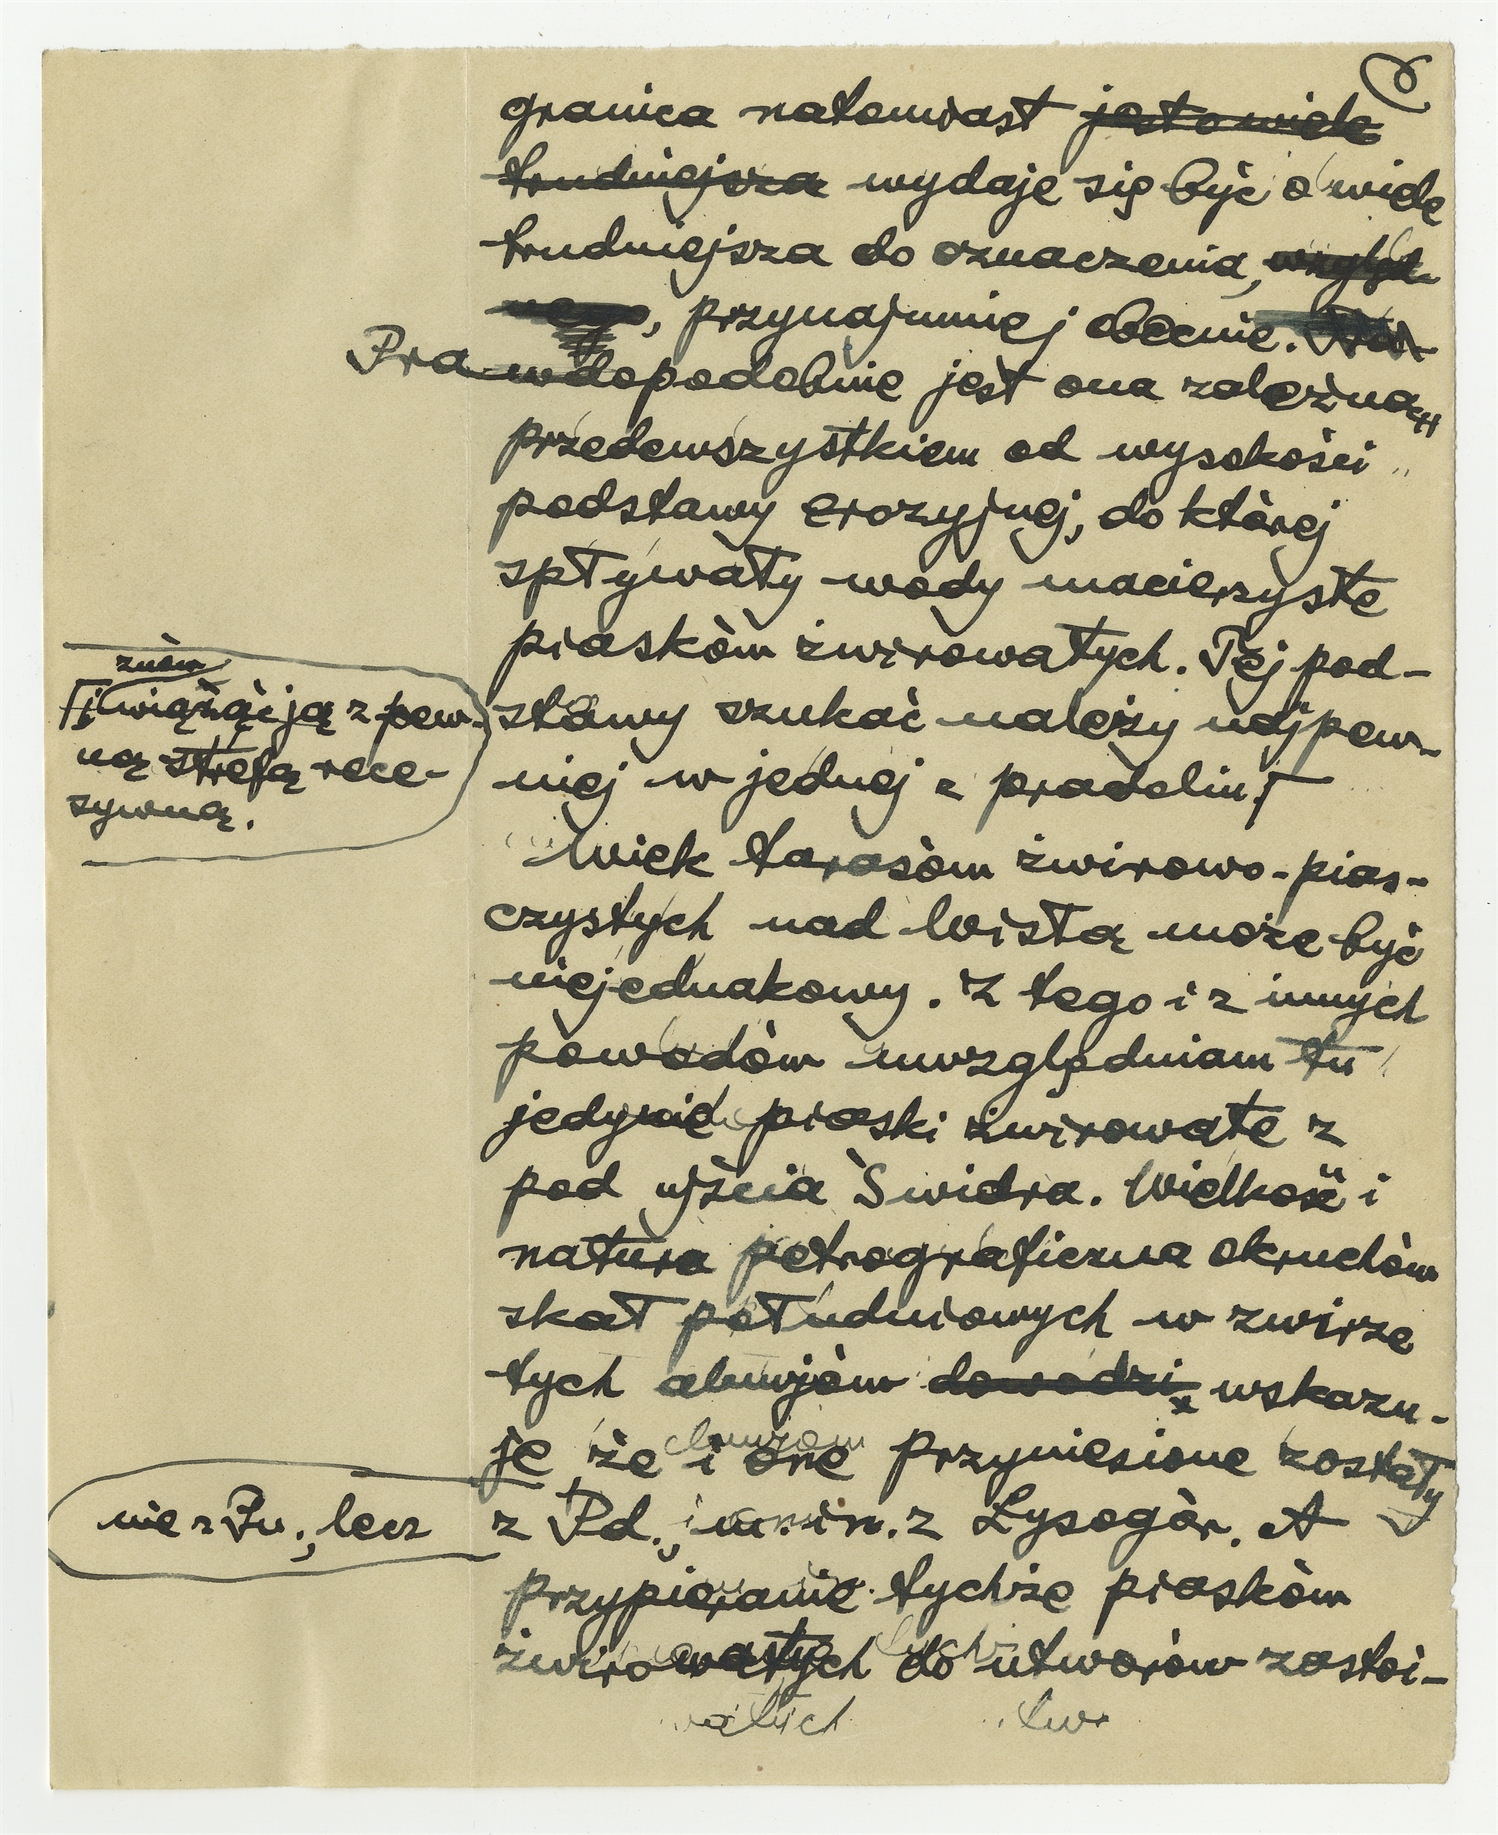 6
granica natomiast jest o wiele
trudniejsza wydaje się być o wiele
trudniejsza do oznaczenia, względ-
nego, przynajmniej obecnie.
Prawdopodobnie jest ona zależna
przedewszystkiem od wysokości
podstawy erozyjnej, do której
spływały wody macierzyste
piasków żwirowatych. Tej pod-
stawy szukać należy najpew-
niej w jednej z pradolin.
znów
i wiązać ją z pew-
ną strefą rece-
sywną.
Wiek tarasów żwirowo-pias-
czystych nad Wisłą może być
niejednakowy. Z tego i z innych
powodów uwzględniam tu
jedynie piaski żwirowate z
pod ujścia Świdra. Wielkość i
natura petrograficzna okruchów
skał południowych w żwirze
tych aluwjów dowodzi wskazu-
je, że i one przyniesione zostały
nie z Pn., lecz
z Pd., m. in. z Łysogór. A
przypieranie tychże piasków
żwirowatych do utworów zastoi-
watych